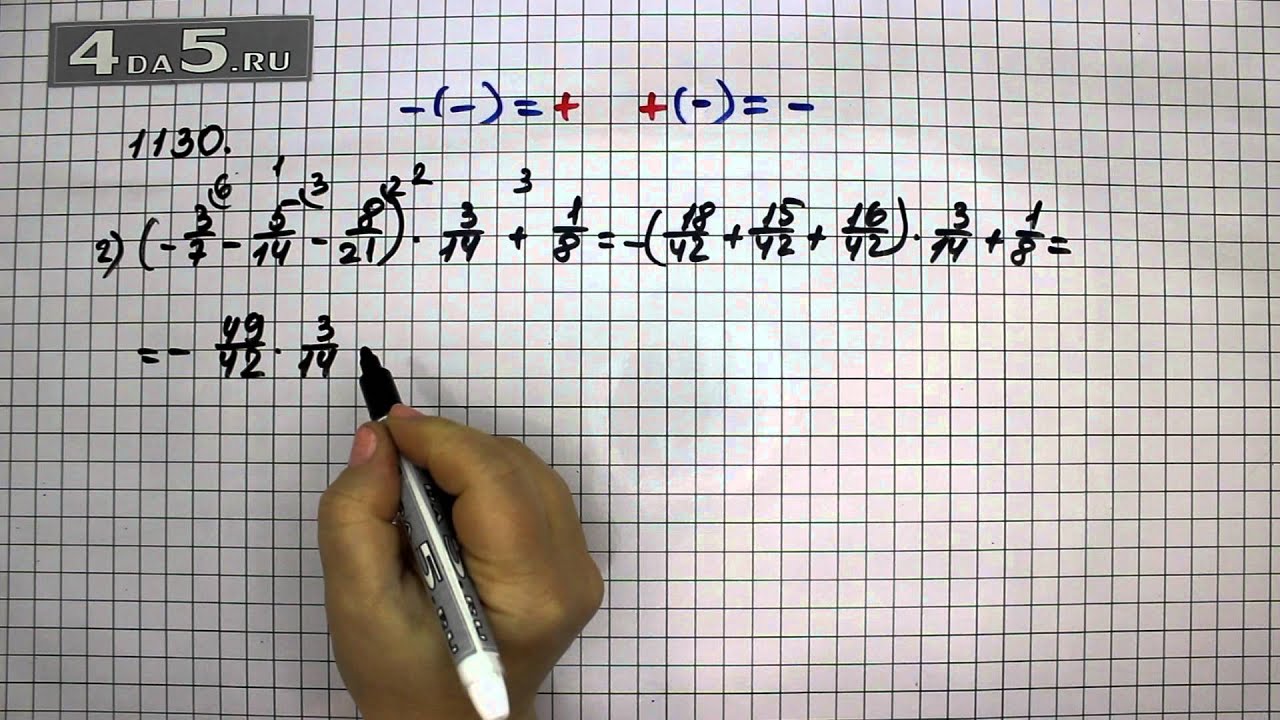 4DA5.RU
-(-)=+ +(-)=-
1130.
6 1 3 2 2 3
2) (-3/7 - 5/14 - 8/21) · 3/14 + 1/8 = -(18/42 + 15/42 + 16/42) · 3/14 + 1/8 =
= - 49/42 · 3/14
5